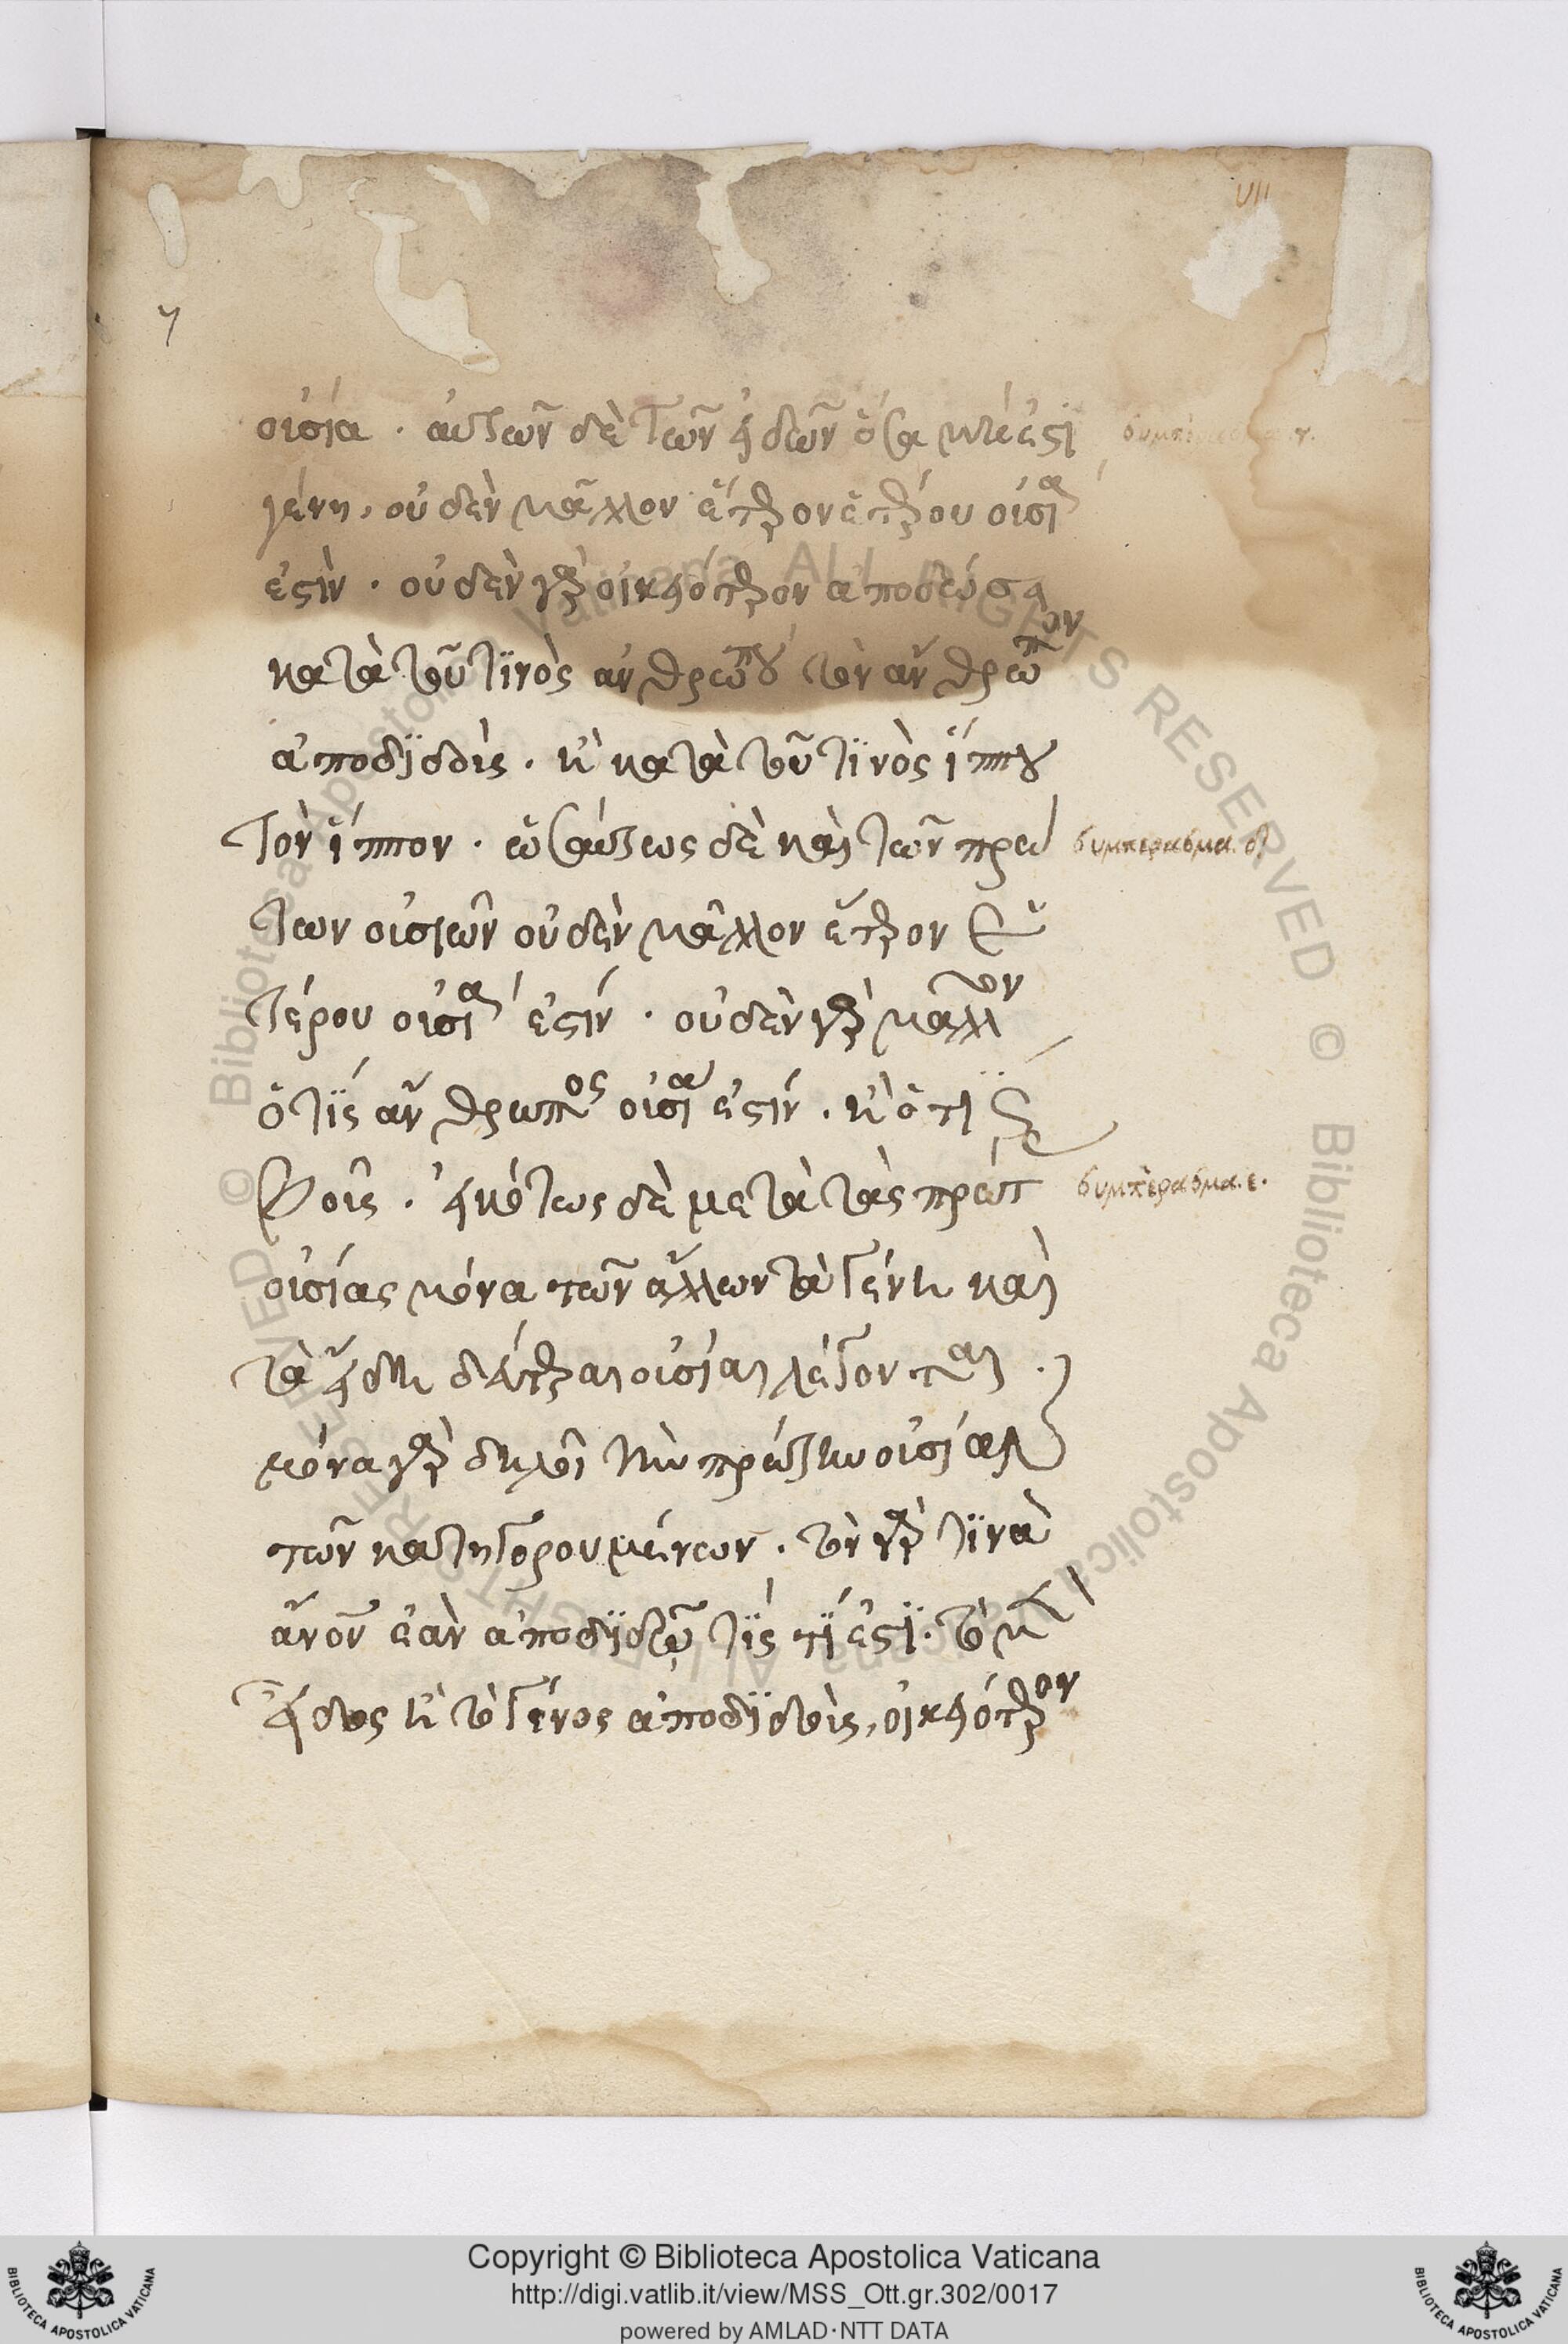 VII
7
οὐσία · αὐτῶν δὲ τῶν εἰδῶν ὅσα μή ἐστι
συμπέρασμα γ.
γένη, οὐδὲν μᾶλλον ἕτερον ἑτέρου οὐσία
ἐστὶν · οὐδὲν γὰρ οἰκειότερον ἀποδώσει
κατὰ τοῦ τινὸς ἀνθρώπου τὸν ἄνθρωπον
ἀποδιδοὺς · κ̀ κατὰ τοῦ τινὸς ἵππου
τὸν ἵππον · ὡσαύτως δὲ καὶ τῶν πρώ
συμπέρασμα. δ
των οὐσιῶν οὐδὲν μᾶλλον ἕτερον ἑ
τέρου οὐσία ἐστίν · οὐδὲν γὰρ μᾶλλον
ὁ τὶς ἄνθρωπος οὐσία ἐστίν · κ̀ ὁ τὶς
βοῦς · εἰκότως δὲ μετὰ τὰς πρώτ
συμπέρασμα. ε.
οὐσίας μόνα τῶν ἄλλων τὰ γένη καὶ
τὰ εἴδη δεύτεραι οὐσίαι λέγονται ·
μόνα γὰρ δηλοῖ τὴν πρώτην οὐσίαν
τῶν κατηγορουμένων · τὸν γὰρ τινὰ
ἄνον ἐὰν ἀποδιδῷ τὶς τί ἐστι · τὸ μὲν
εἶδος κ̀ τὸ γένος ἀποδιδοὺς, οἰκειότερον
Copyright © Biblioteca Apostolica Vaticana
http://digi.vatlib.it/view/MSS_Ott.gr.302/0017
powered by AMLAD·NTT DATA
BIBLIOTECA APOSTOLICA VATICANA
BIBLIOTECA APOSTOLICA VATICANA
© Biblioteca Apostolica Vaticana ALL RIGHTS RESERVED © Biblioteca Apostolica Vaticana ALL RIGHTS RESERVED